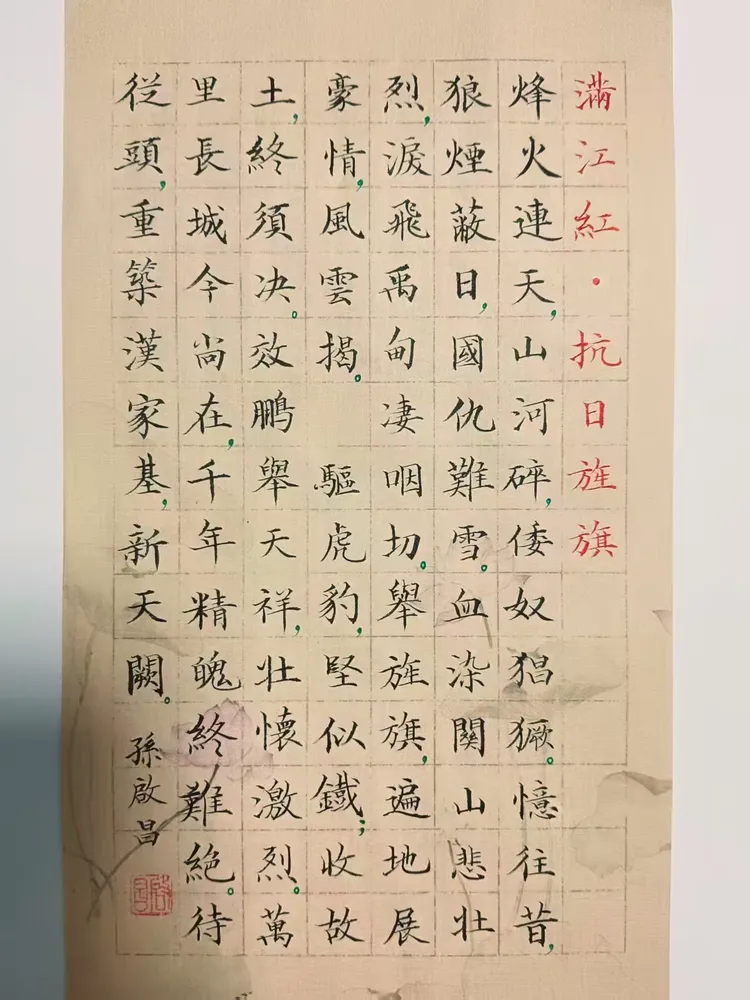 滿江紅·抗日旌旗
烽火連天,山河碎,倭奴猖獗。憶往昔,
狼煙蔽日,國仇難雪。血染關山悲壯
烈,淚飛禹甸凄咽切。舉旌旗,遍地展
豪情,風雲揭。 驅虎豹,堅似鐵;收故
土,終須决。效鵬舉天祥,壯懷激烈。萬
里長城今尚在,千年精魄終難絕。待
從頭,重築漢家基,新天闕。
孫啟昌